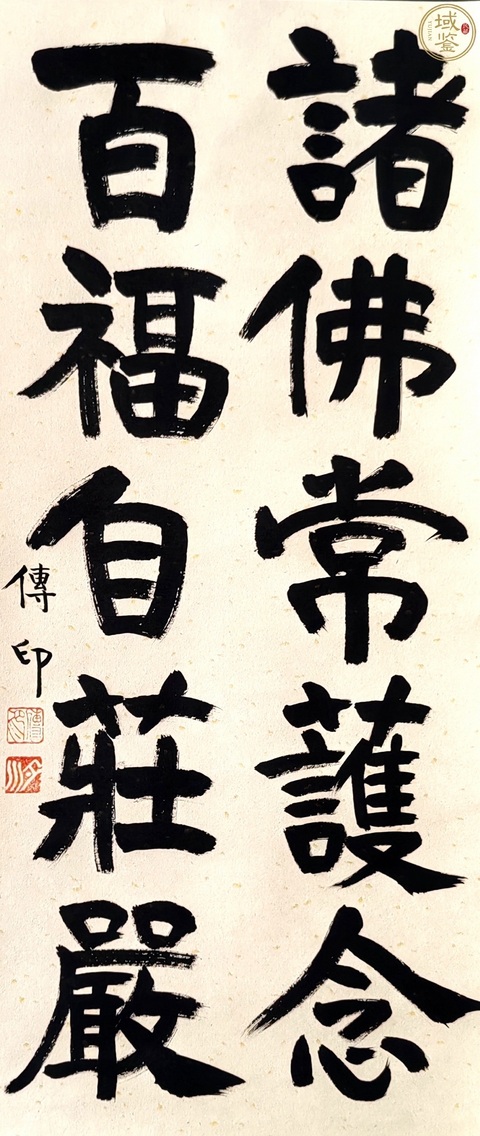 諸佛常護念
百福自莊嚴
傳印
域鉴
YUJIAN